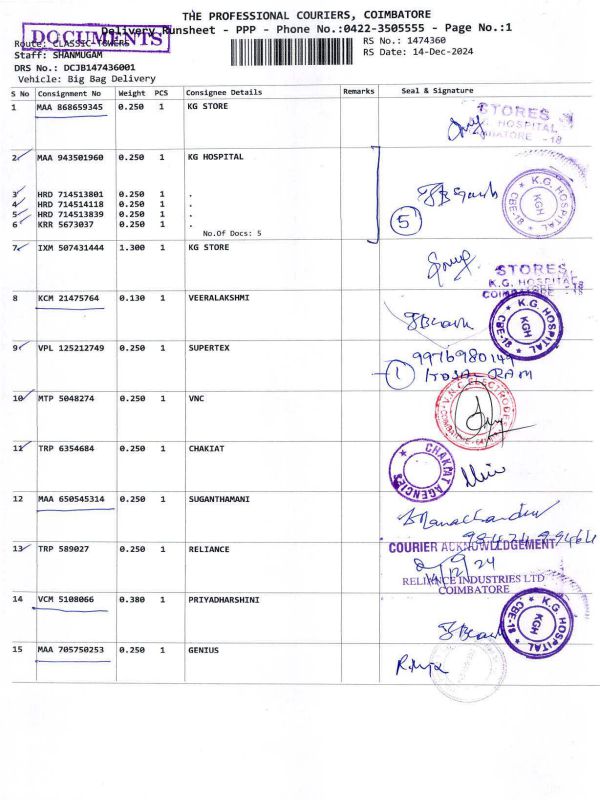 THE PROFESSIONAL COURIERS, COIMBATORE
Delivery Runsheet - PPP - Phone No.:0422-3505555 - Page No.:1
DOCUMENTS
Route: CLASSIC-TOWERS
RS No.: 1474360
Staff: SHANMUGAM
RS Date: 14-Dec-2024
DRS No.: DCJB147436001
Vehicle: Big Bag Delivery
S No Consignment No Weight PCS Consignee Details Remarks Seal & Signature
1 MAA 868659345 0.250 1 KG STORE
STORES
HOSPITAL
-18
2 MAA 943501960 0.250 1 KG HOSPITAL
3 HRD 714513801 0.250 1 .
4 HRD 714514118 0.250 1 .
5 HRD 714513839 0.250 1 .
6 KRR 5673037 0.250 1 .
No.Of Docs: 5
5
K.G. HOSPITAL
KGH
CBE-18
7 IXM 507431444 1.300 1 KG STORE
STORES
K.G. HOSPITAL
COIMBATORE -18
8 KCM 21475764 0.130 1 VEERALAKSHMI
K.G. HOSPITAL
KGH
CBE-18
9 VPL 125212749 0.250 1 SUPERTEX
1
10 MTP 5048274 0.250 1 VNC
V.N.C ELECTRODES
11 TRP 6354684 0.250 1 CHAKIAT
CHAKIAT AGENCIES
12 MAA 650545314 0.250 1 SUGANTHAMANI
13 TRP 589027 0.250 1 RELIANCE
COURIER ACKNOWLEDGEMENT
14/12/24
RELIANCE INDUSTRIES LTD
COIMBATORE
14 VCM 5108066 0.380 1 PRIYADHARSHINI
K.G. HOSPITAL
KGH
CBE-18
15 MAA 705750253 0.250 1 GENIUS